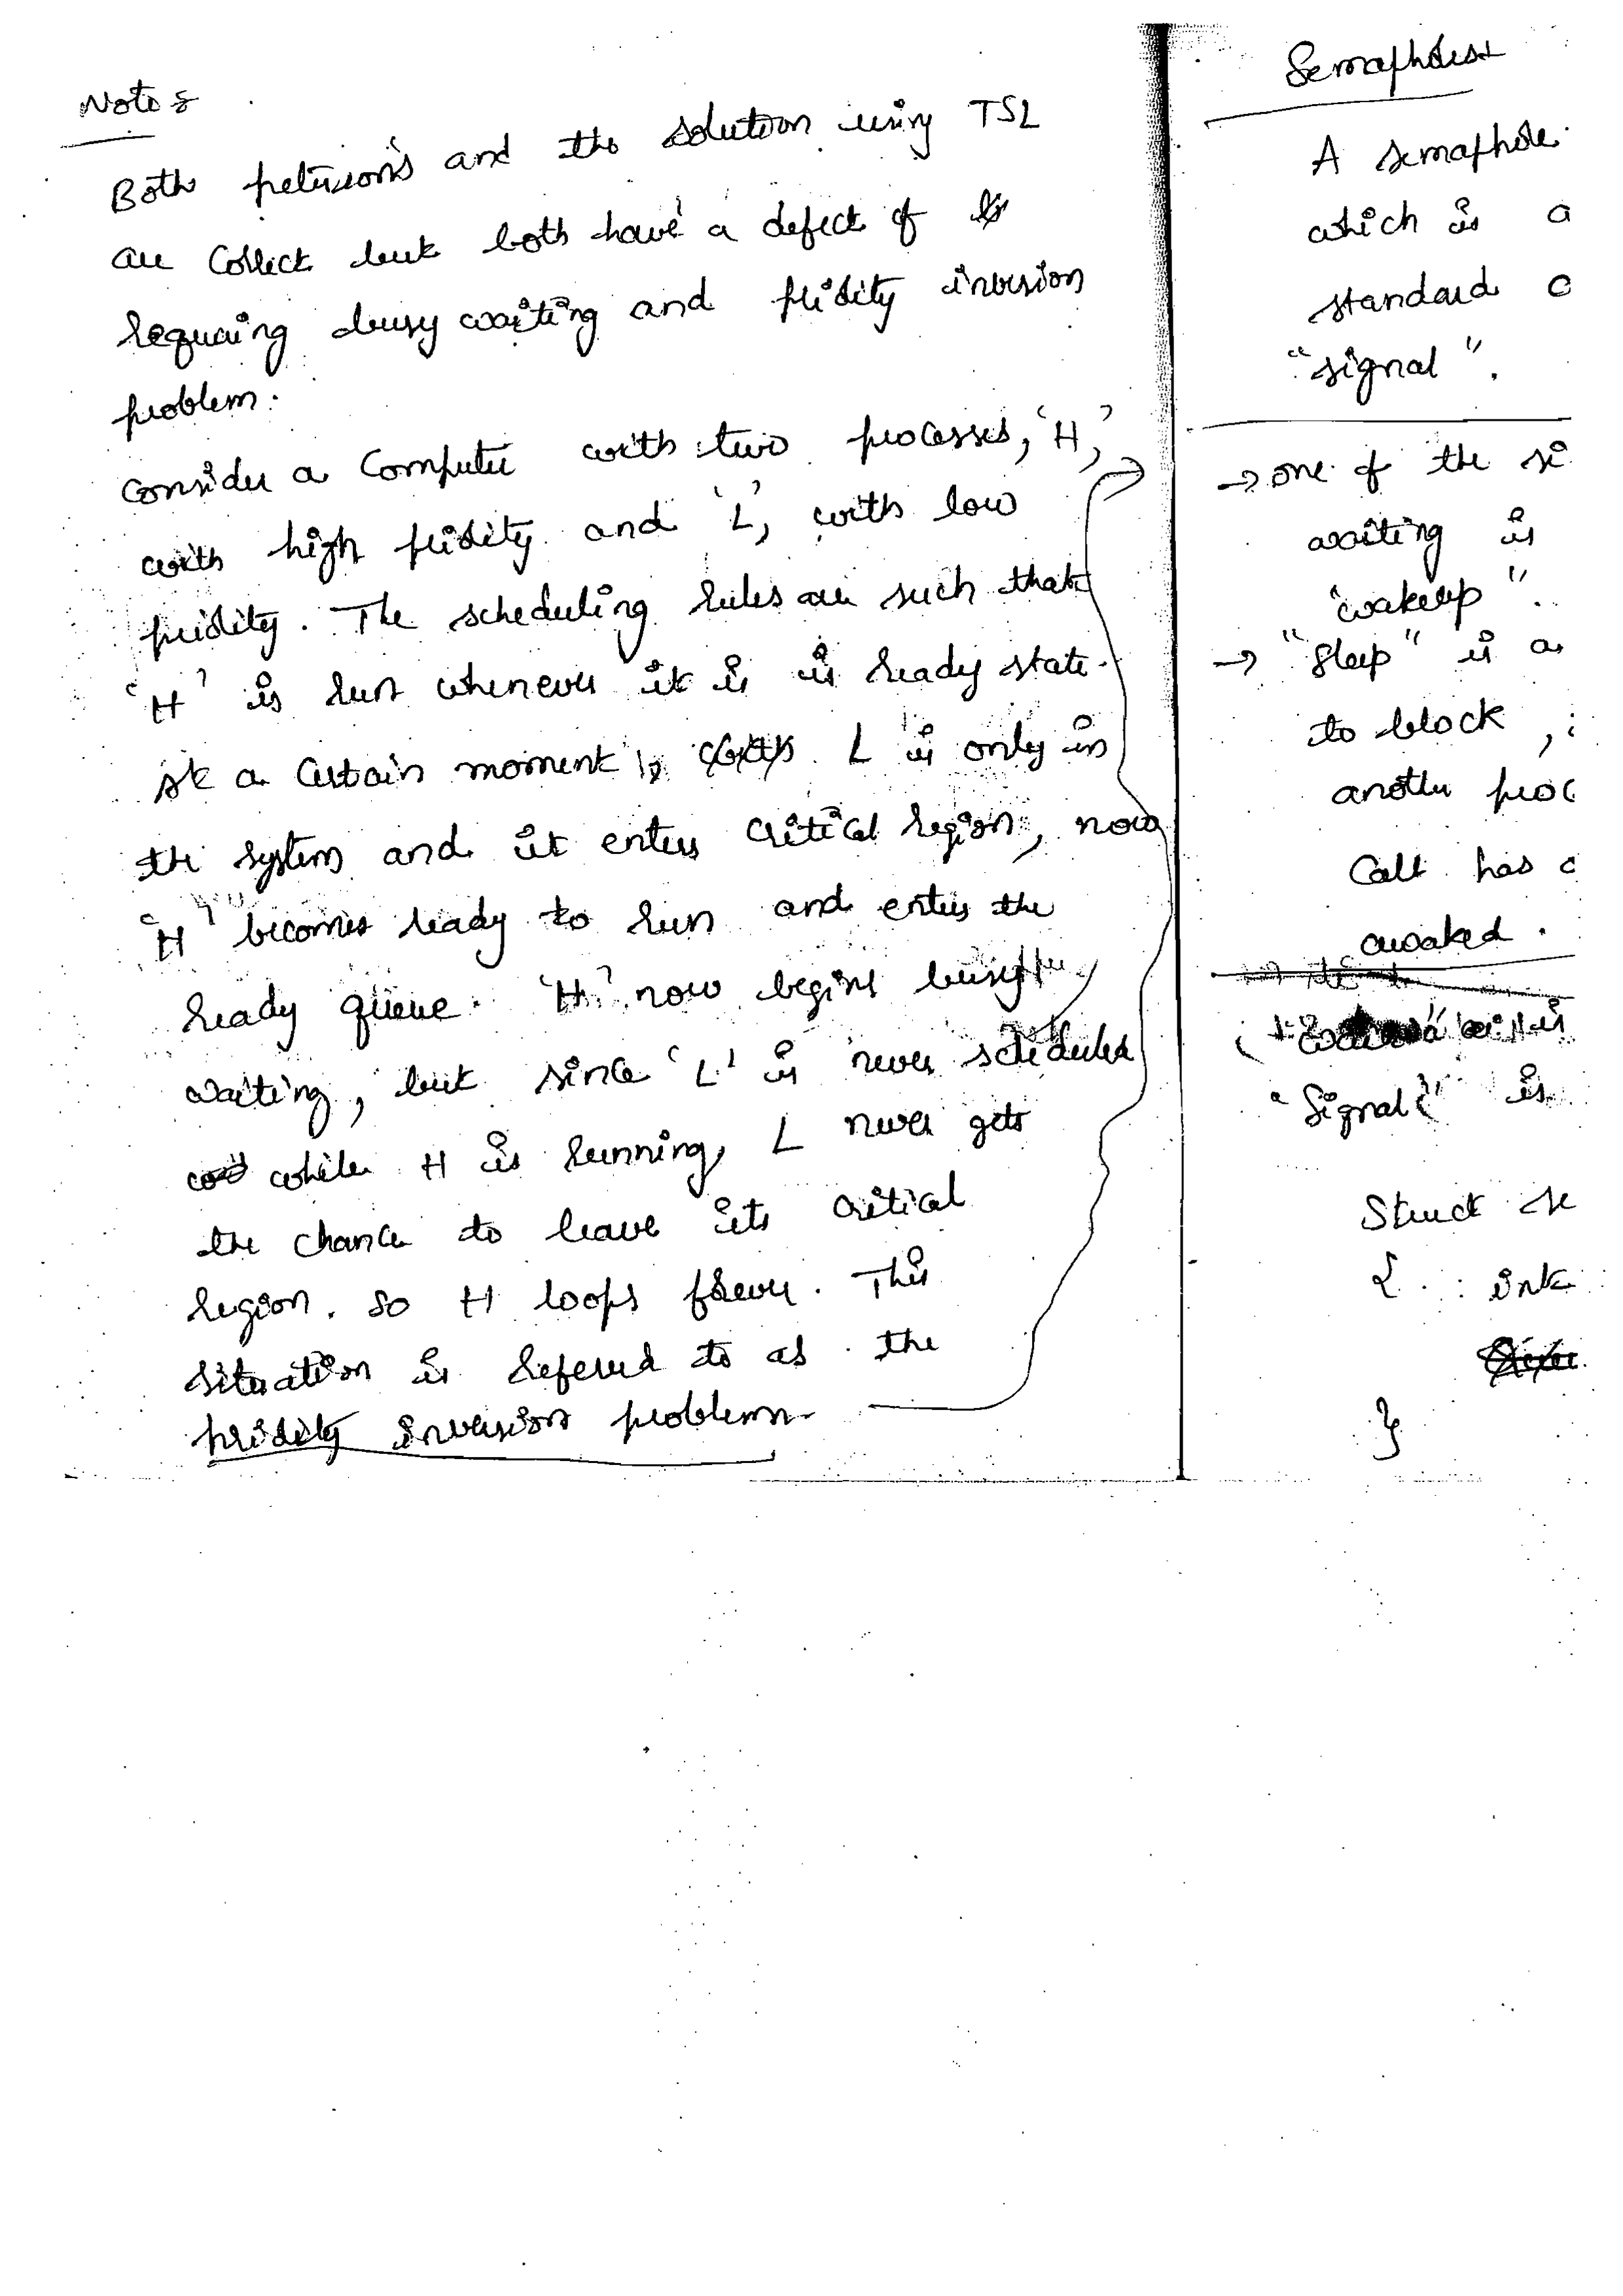 Notes
Both peterson's and the solution using TSL
are correct but both have a defect of
requiring busy waiting and priority inversion
problem.
Consider a computer with two processes, 'H',
with high priority and 'L', with low
priority. The scheduling rules are such that
'H' is run whenever it is is ready state.
At a certain moment, L is only in
the system and it enters critical region, now
'H' becomes ready to run and enters the
ready queue. 'H' now begins busy
waiting, but since 'L' is never scheduled
while H is running, L never gets
the chance to leave its critical
region. so H loops forever. This
situation is refered to as the
priority inversion problem.
Semaphores
A semaphore
which is a
standard
"signal".
→ one of the
waiting is
"wakeup".
→ "Sleep" is a
to block,
another
Call has
awaked.
"Signal" is
Struct
{ int
}